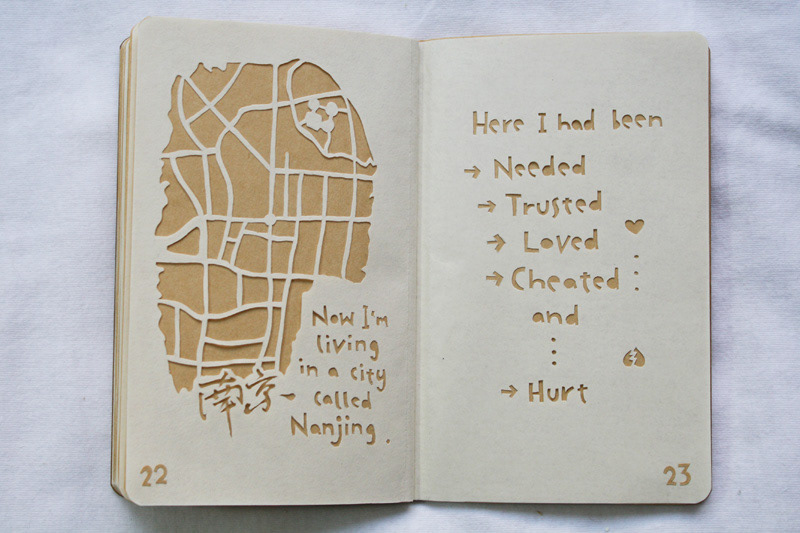 南京
Now I'm
living
in a city
called
Nanjing.
22
Here I had been
→ Needed
→ Trusted
→ Loved
→ Cheated
and
→ Hurt
23